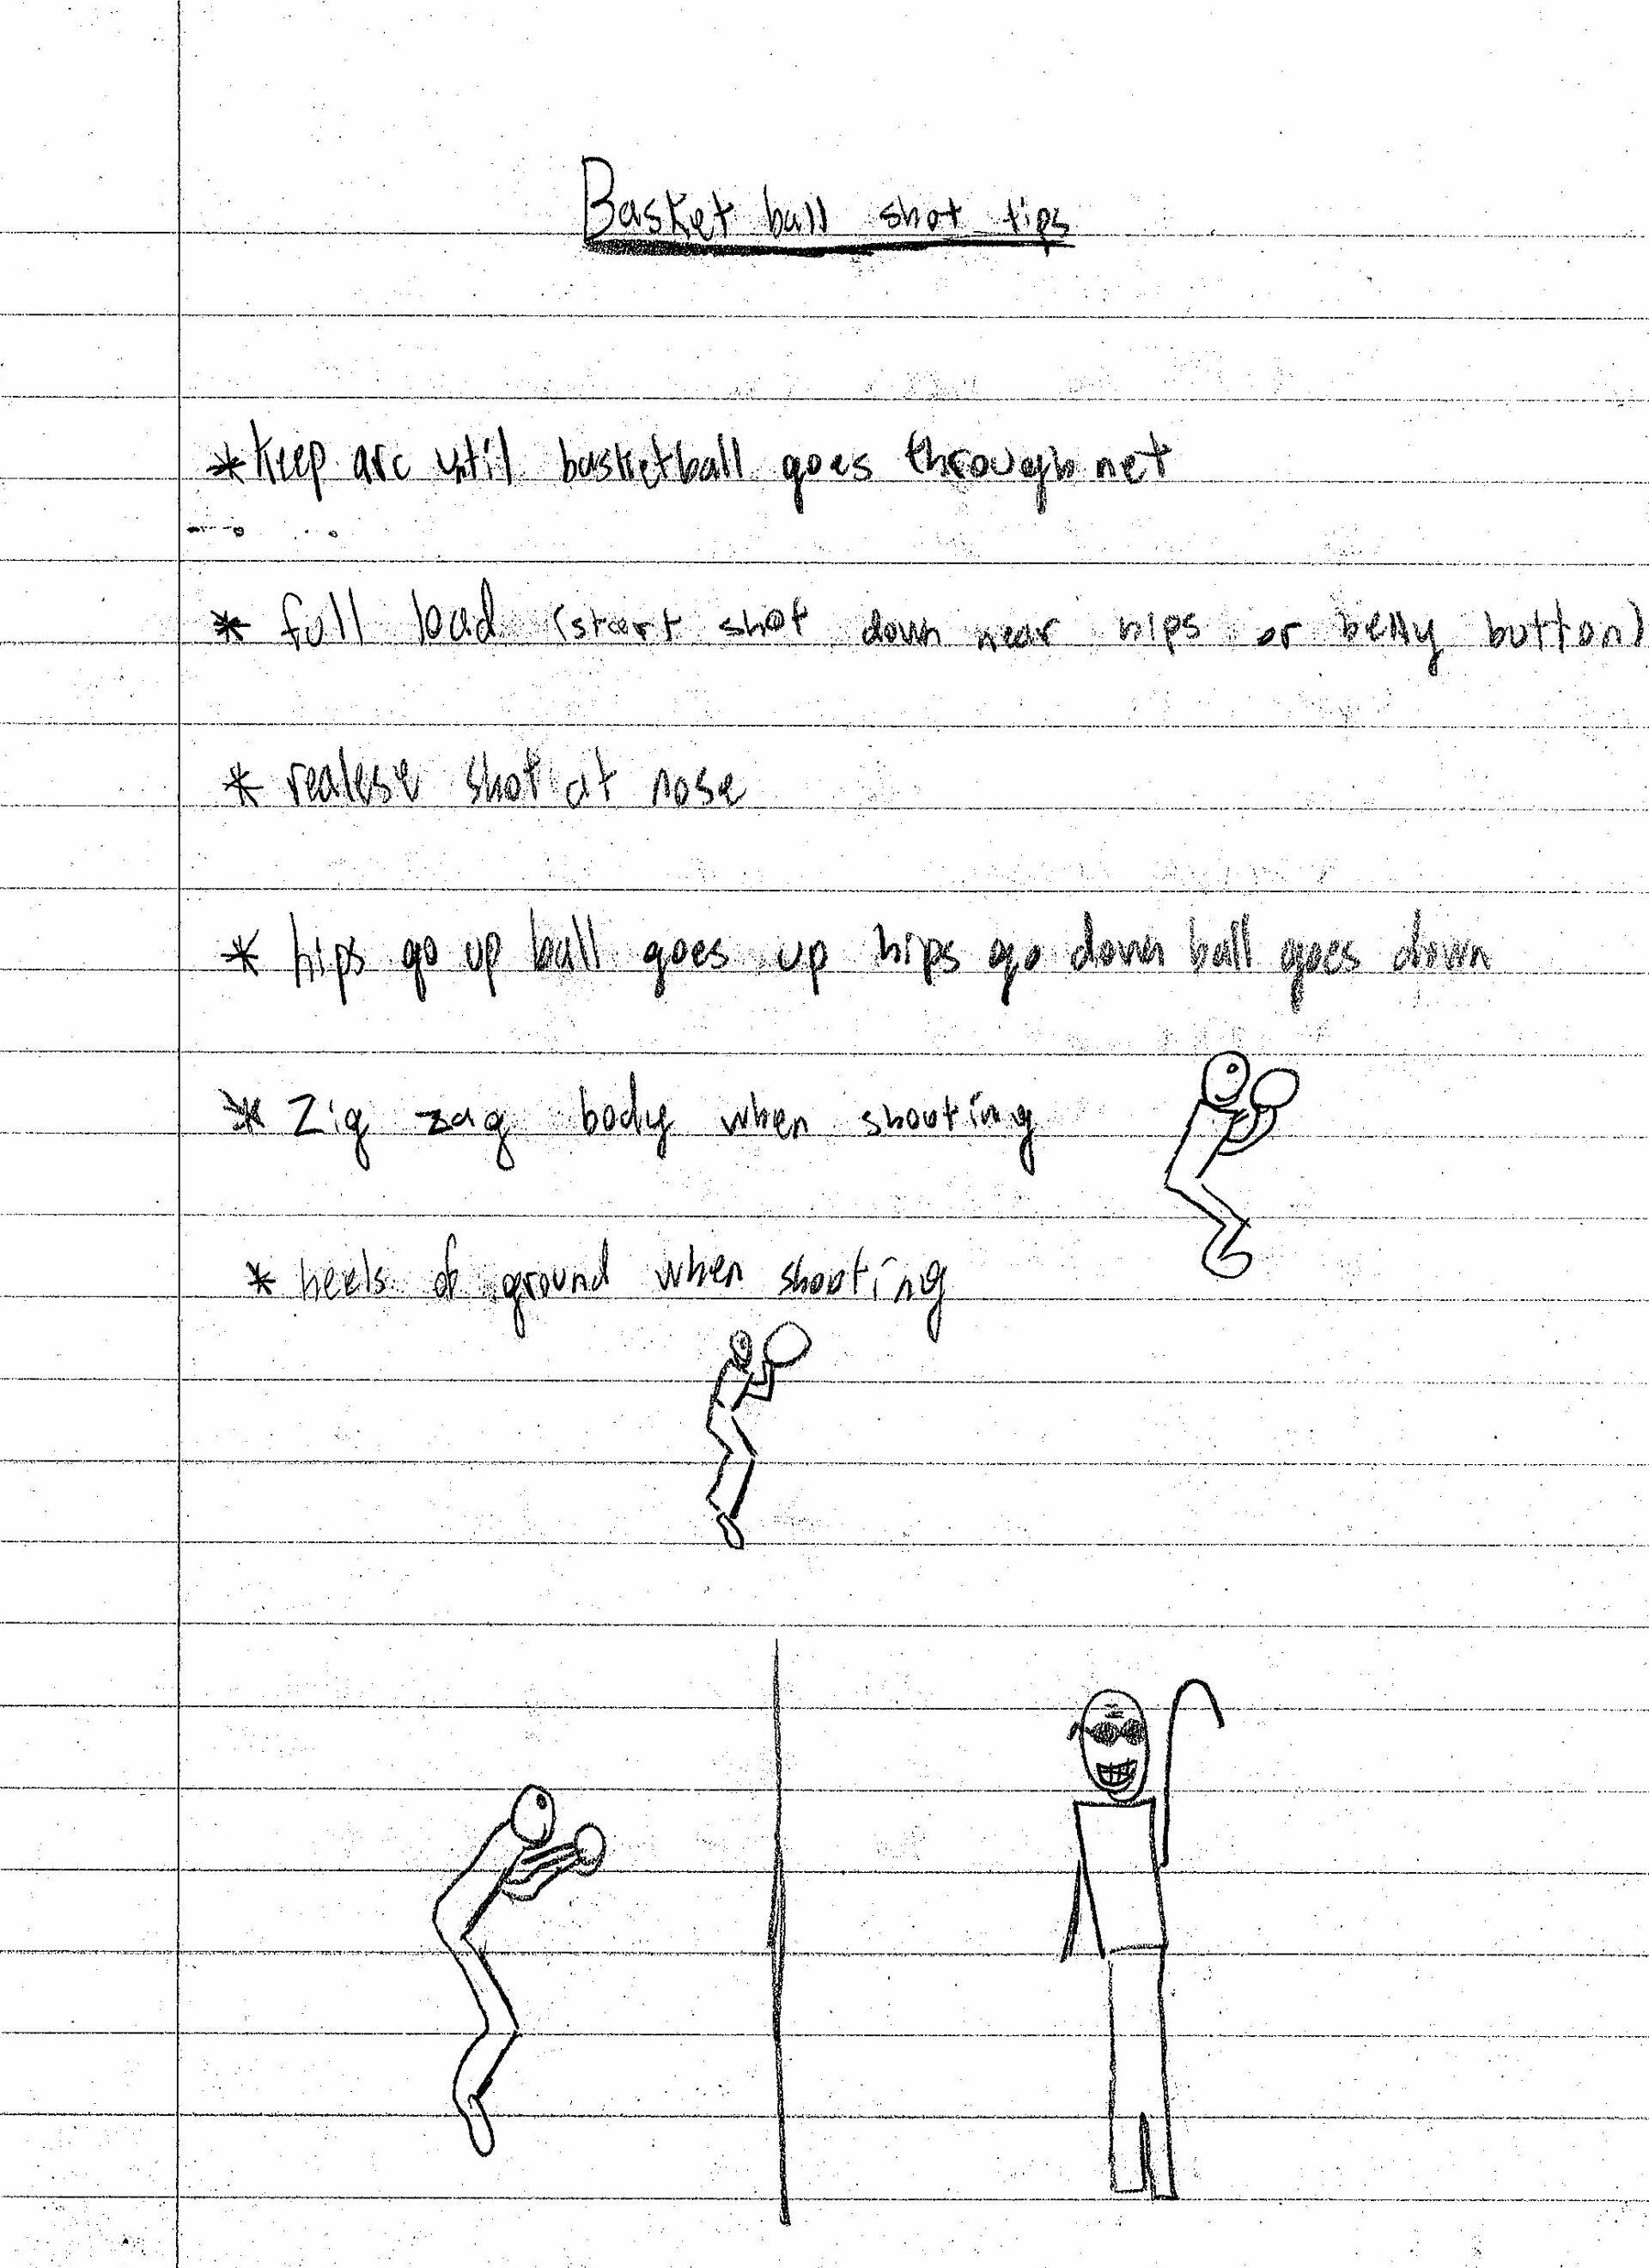 Basket ball shot tips
* Keep arc until basketball goes through net
* full load (start shot down near hips or belly button)
* realese shot at nose
* hips go up ball goes up hips go down ball goes down
* Zig zag body when shooting
* heels of ground when shooting